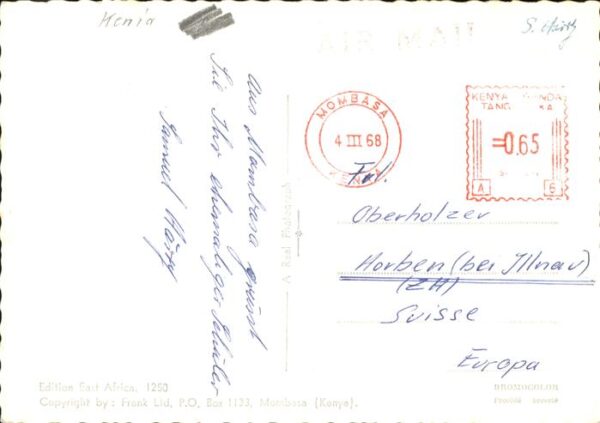 Kenia
S. Härtz
AIR MAIL
Aus Mombasa grüsst
Sie Ihr ehemaliger Schüler
Samuel
A Real Photograph
MOMBASA
4 III 68
KENYA
KENYA
TANG KA
=0.65
A 6
Frl.
Oberholzer
Horben (bei Illnau)
(ZH)
Suisse
Europa
Edition East Africa, 1250
Copyright by: Frank Ltd, P.O, Box 1133, Mombasa (Kenya).
BROMOCOLOR